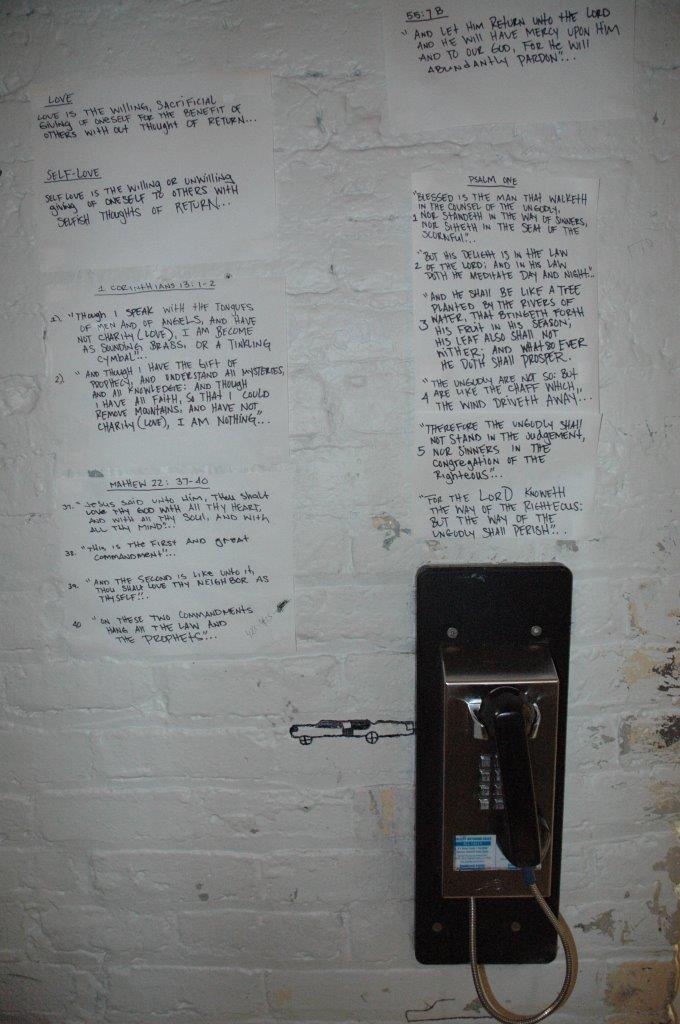 55:7B
"AND LET HIM RETURN UNTO THE LORD
AND HE WILL HAVE MERCY UPON HIM
AND TO OUR GOD, FOR HE WILL
ABUNDANTLY PARDON"...
LOVE
LOVE IS THE WILLING, SACRIFICIAL
GIVING OF ONESELF FOR THE BENEFIT OF
OTHERS WITH OUT THOUGHT OF RETURN...
SELF-LOVE
SELF LOVE IS THE WILLING OR UNWILLING
GIVING OF ONESELF TO OTHERS WITH
SELFISH THOUGHTS OF RETURN...
1 CORINTHIANS 13:1-2
1). "THOUGH I SPEAK WITH THE TONGUES
OF MEN AND OF ANGELS, AND HAVE
NOT CHARITY (LOVE), I AM BECOME
AS SOUNDING BRASS, OR A TINKLING
CYMBAL"...
2). "AND THOUGH I HAVE THE GIFT OF
PROPHECY, AND UNDERSTAND ALL MYSTERIES,
AND ALL KNOWLEDGE: AND THOUGH
I HAVE ALL FAITH, SO THAT I COULD
REMOVE MOUNTAINS, AND HAVE NOT
CHARITY (LOVE), I AM NOTHING"...
MATHEW 22: 37-40
37. "JESUS SAID UNTO HIM, THOU SHALT
LOVE THY GOD WITH ALL THY HEART,
AND WITH ALL THY SOUL, AND WITH
ALL THY MIND"...
38. "THIS IS THE FIRST AND GREAT
COMMANDMENT"...
39. "AND THE SECOND IS LIKE UNTO IT,
THOU SHALT LOVE THY NEIGHBOR AS
THYSELF"...
40 "ON THESE TWO COMMANDMENTS
HANG ALL THE LAW AND
THE PROPHETS"...
PSALM ONE
"BLESSED IS THE MAN THAT WALKETH
IN THE COUNSEL OF THE UNGODLY,
1 NOR STANDETH IN THE WAY OF SINNERS,
NOR SITTETH IN THE SEAT OF THE
SCORNFUL"...
"BUT HIS DELIGHT IS IN THE LAW
2 OF THE LORD; AND IN HIS LAW
DOTH HE MEDITATE DAY AND NIGHT"...
"AND HE SHALL BE LIKE A TREE
PLANTED BY THE RIVERS OF
3 WATER, THAT BRINGETH FORTH
HIS FRUIT IN HIS SEASON;
HIS LEAF ALSO SHALL NOT
WITHER; AND WHATSOEVER
HE DOTH SHALL PROSPER.
"THE UNGODLY ARE NOT SO: BUT
4 ARE LIKE THE CHAFF WHICH
THE WIND DRIVETH AWAY"...
"THEREFORE THE UNGODLY SHALL
NOT STAND IN THE JUDGEMENT,
5 NOR SINNERS IN THE
CONGREGATION OF THE
RIGHTEOUS"...
"FOR THE LORD KNOWETH
THE WAY OF THE RIGHTEOUS:
BUT THE WAY OF THE
UNGODLY SHALL PERISH"...